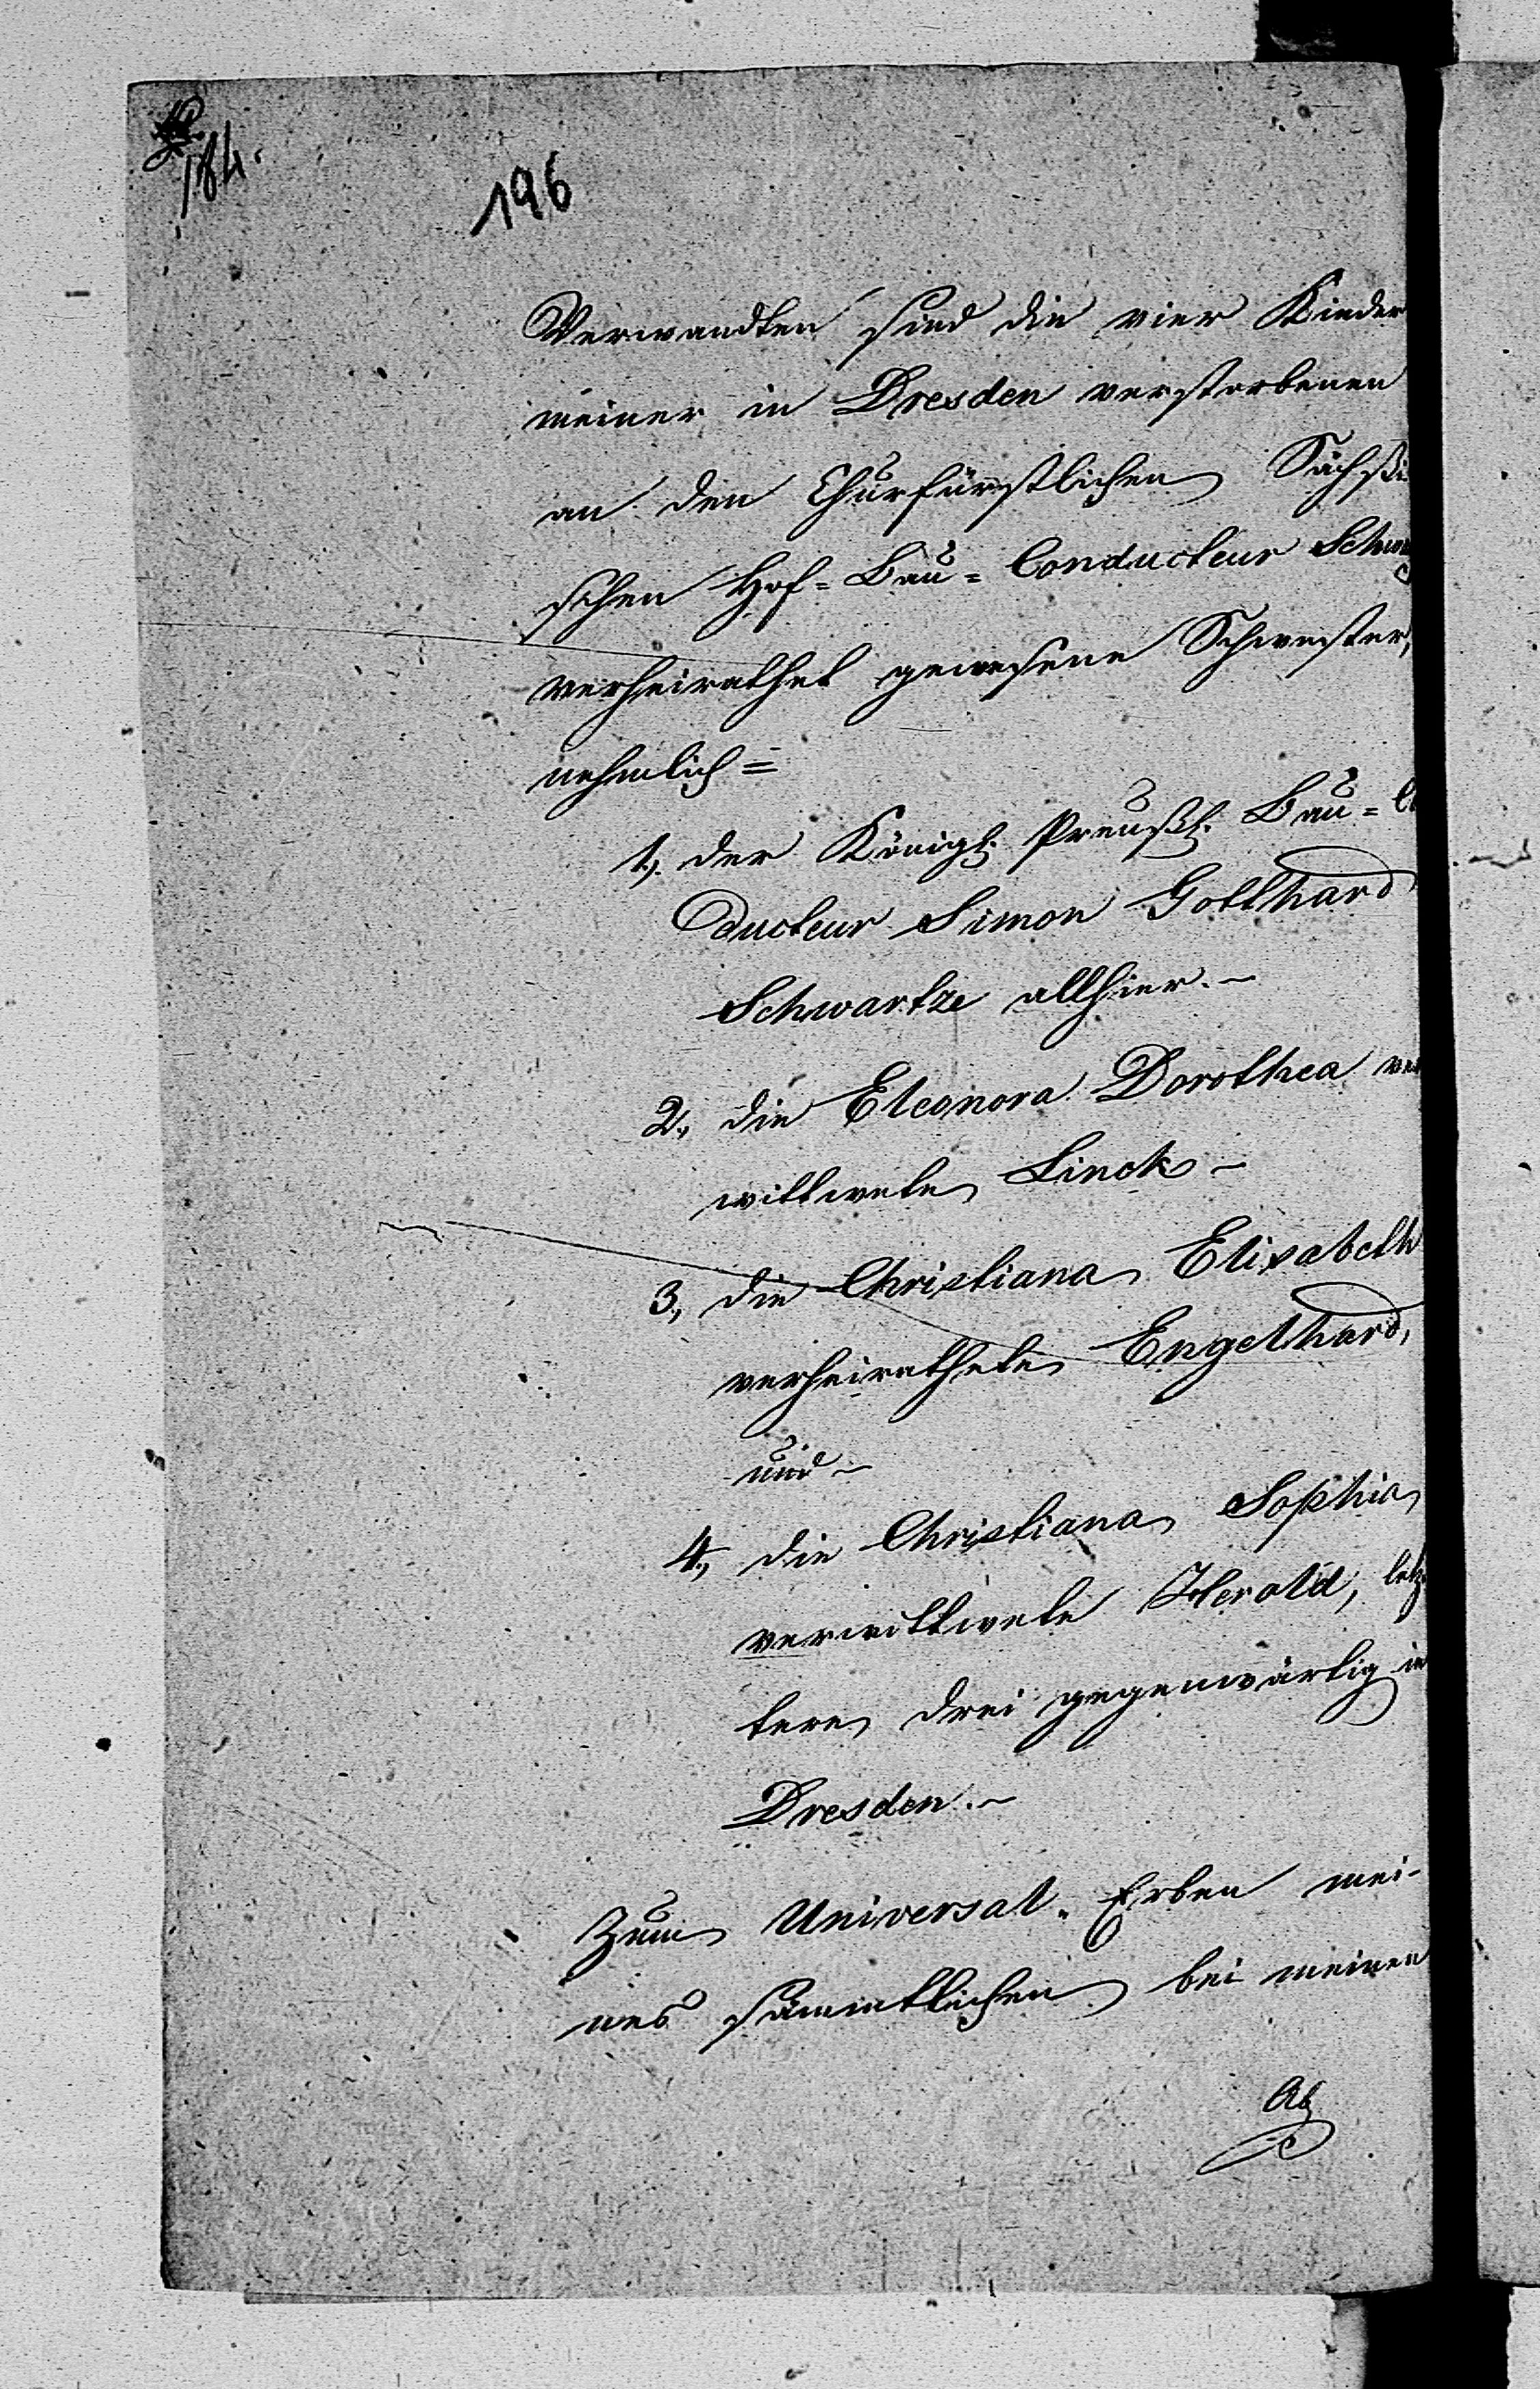 184.
196
Verwandten sind die vier Kinder
meiner in Dresden verstorbenen
an den Churfürstlichen Sächßi
schen Hof=Bau=Conducteur Schw
verheirathet gewesene Schwester,
nehmlich =
1., der Königl. Preußl. Bau=C
ducteur Simon Gotthard
Schwartze allhier. ~
2., die Eleonora Dorothea ver
wittwete Linck ~
3., die Christiana Elisabeth
verheirathete Engelhard,
und ~
4., die Christiana Sophia
verwittwete Herold, letz
tere drei gegenwärtig in
Dresden. ~
Zum Universal=Erben mei-
nes sämmtlichen bei meinen
Ab